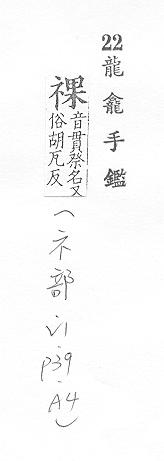 22龍龕手鑑
祼音貫祭名又
俗胡瓦反
(ネ部、V1、P39、A4)